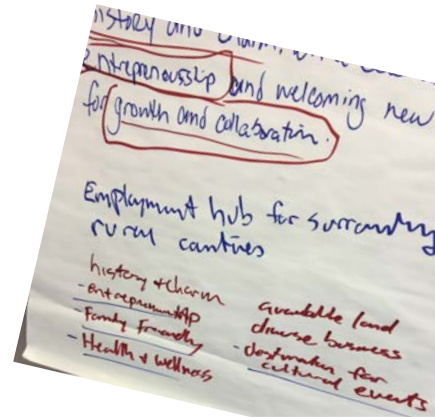 history and
entrepreneurship and welcoming new
for growth and collaboration.
Employment hub for surrounding
rural
history + charm
- entrepreneurship
- Family Friendly
- Health + wellness
available land
diverse business
- destination for
cultural events